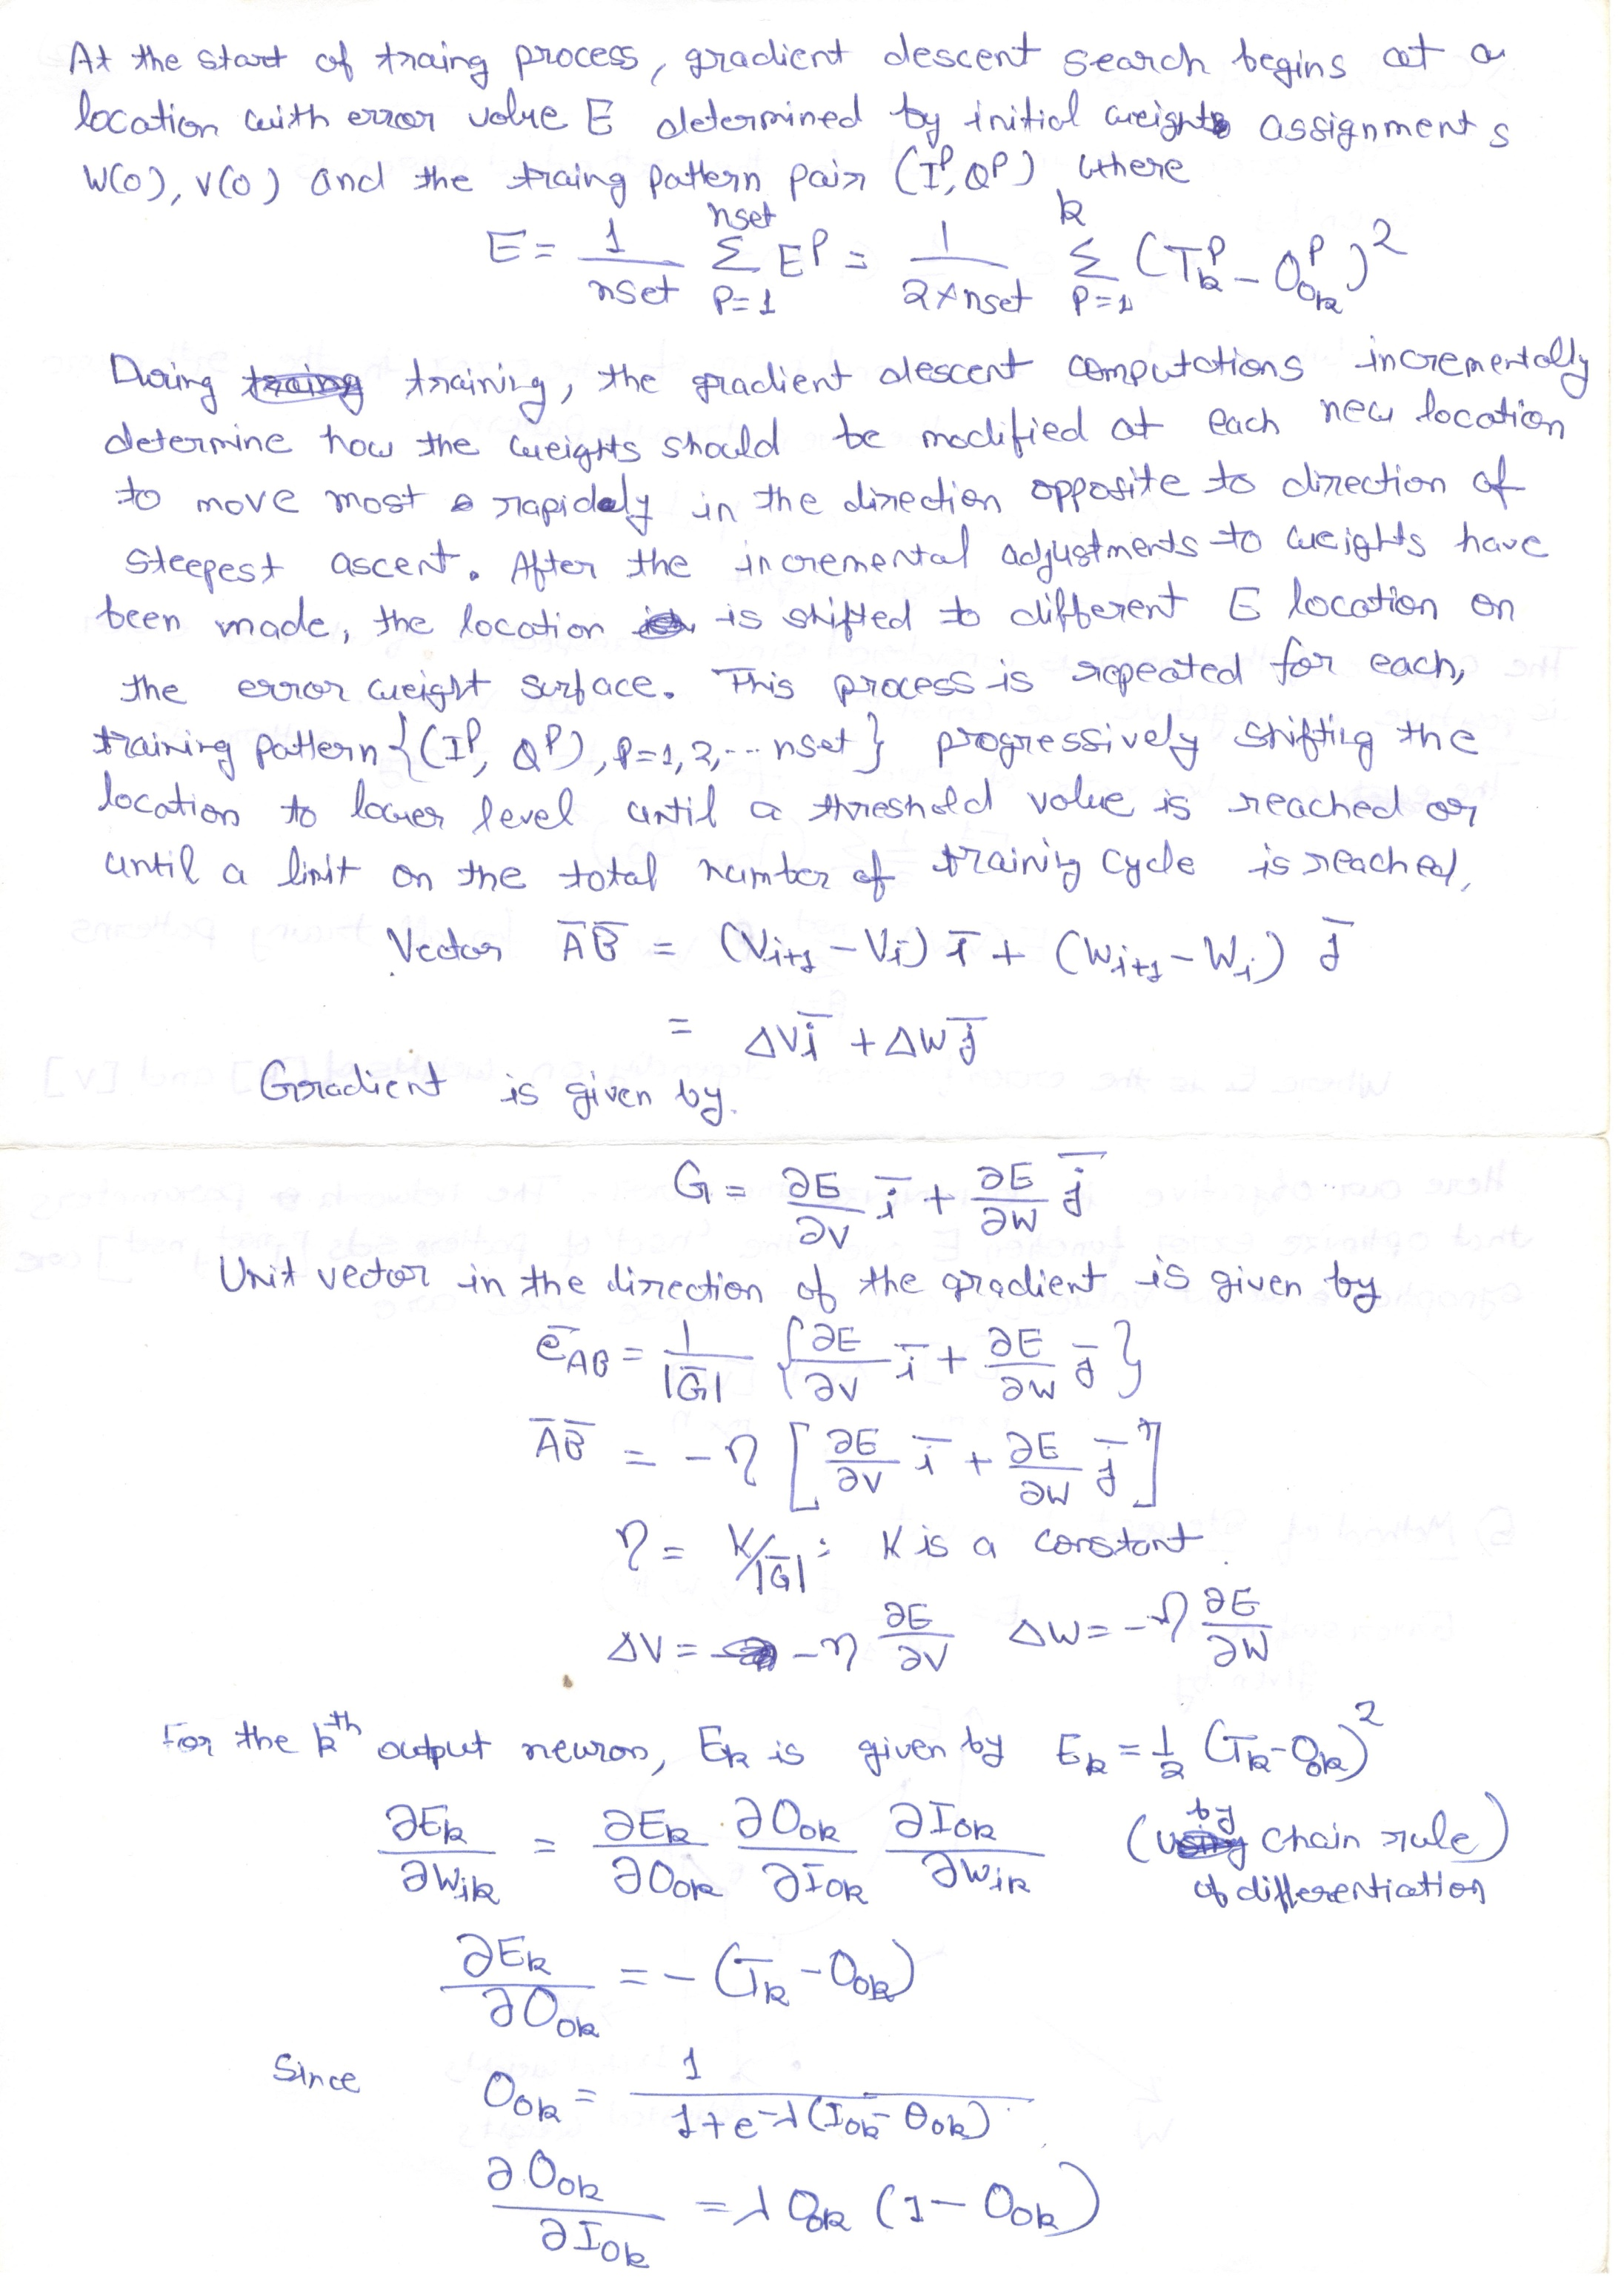 At the start of traing process, gradient descent search begins at a
location with error value E determined by initial weights assignments
W(0), V(0) and the traing pattern pair (I^P, O^P) where
E = 1/nset Σ_{P=1}^{nset} E^P = 1/(2×nset) Σ_{P=1}^{k} (T_k^P - O_{Ok}^P)^2
During training, the gradient descent computations incrementally
determine how the weights should be modified at each new location
to move most rapidely in the direction opposite to direction of
steepest ascent. After the incremental adjustments to weights have
been made, the location is shifted to different E location on
the error weight surface. This process is repeated for each,
training pattern {(I^P, O^P), P=1,2,--- nset} progressively shifting the
location to lower level until a threshold value is reached or
until a limit on the total number of training cycle is reached,
Vector A̅B̅ = (V_{i+1} - V_i) i̅ + (W_{i+1} - W_i) j̅
= ΔV i̅ + ΔW j̅
Gradient is given by.
G = ∂E/∂V i̅ + ∂E/∂W j̅
Unit vector in the direction of the gradient is given by
e̅_{AB} = 1/|G̅| {∂E/∂V i̅ + ∂E/∂W j̅}
A̅B̅ = -η [∂E/∂V i̅ + ∂E/∂W j̅]
η = K/|G̅| ; K is a constant.
ΔV = -η ∂E/∂V ΔW = -η ∂E/∂W
For the k^th output neuron, E_k is given by E_k = 1/2 (T_k - O_{Ok})^2
∂E_k/∂W_{ik} = ∂E_k/∂O_{Ok} · ∂O_{Ok}/∂I_{Ok} ∂I_{Ok}/∂W_{ik} (by chain rule)
of differentiation
∂E_k/∂O_{Ok} = -(T_k - O_{Ok})
Since O_{Ok} = 1/(1+e^{-λ(I_{Ok} - θ_{Ok})})
∂O_{Ok}/∂I_{Ok} = λ O_{Ok} (1 - O_{Ok})